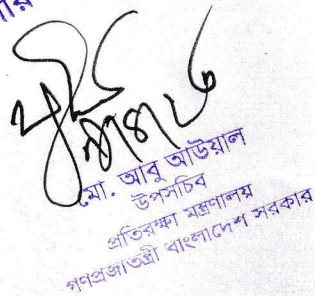 মো. আবু আউয়াল
উপসচিব
প্রতিরক্ষা মন্ত্রণালয়
গণপ্রজাতন্ত্রী বাংলাদেশ সরকার